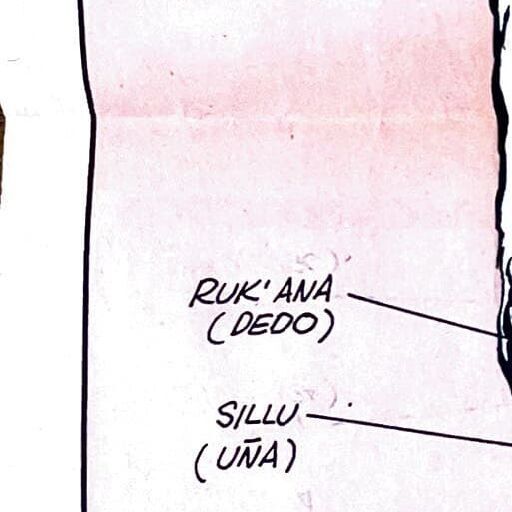 RUK'ANA
(DEDO)
SILLU
(UÑA)